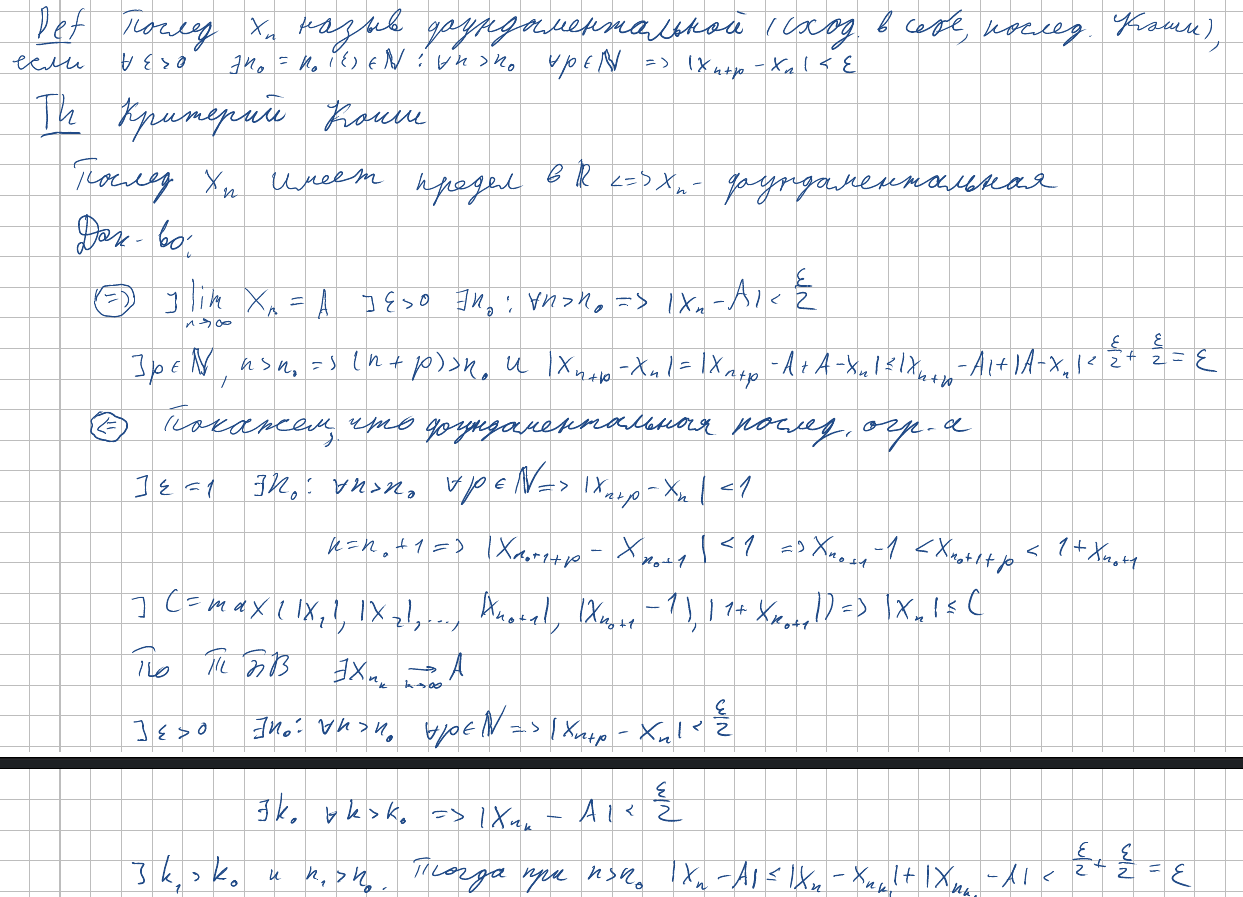 Def Послед xₙ назыв фундаментальной (сход. в себе, послед. Коши),
если ∀ε>0 ∃n₀ = n₀(ε)∈ℕ : ∀n>n₀ ∀p∈ℕ => |xₙ₊ₚ - xₙ| < ε
Th Критерий Коши
Послед xₙ имеет предел в ℝ <=> xₙ - фундаментальная
Док-во:
(=>) ∃ lim_{n→∞} xₙ = A ∃ ε>0 ∃n₀ : ∀n>n₀ => |xₙ - A| < ε/2
∃ p∈ℕ, n>n₀ => (n+p)>n₀ и |xₙ₊ₚ - xₙ| = |xₙ₊ₚ - A + A - xₙ| ≤ |xₙ₊ₚ - A| + |A - xₙ| < ε/2 + ε/2 = ε
(<=) Покажем, что фундаментальная послед. огр-а
∃ ε = 1 ∃n₀ : ∀n>n₀ ∀p∈ℕ => |xₙ₊ₚ - xₙ| < 1
n = n₀+1 => |x_{n₀+1+p} - x_{n₀+1}| < 1 => x_{n₀+1} - 1 < x_{n₀+1+p} < 1 + x_{n₀+1}
∃ C = max(|x₁|, |x₂|, ..., |x_{n₀+1}|, |x_{n₀+1} - 1|, |1 + x_{n₀+1}|) => |xₙ| ≤ C
По Т БВ ∃x_{nₖ} →_{k→∞} A
∃ ε>0 ∃n₀ : ∀n>n₀ ∀p∈ℕ => |xₙ₊ₚ - xₙ| < ε/2
∃k₀ ∀k>k₀ => |x_{nₖ} - A| < ε/2
∃ k₁>k₀ и n₁>n₀. Тогда при n>n₀ |xₙ - A| ≤ |xₙ - x_{nₖ₁}| + |x_{nₖ₁} - A| < ε/2 + ε/2 = ε